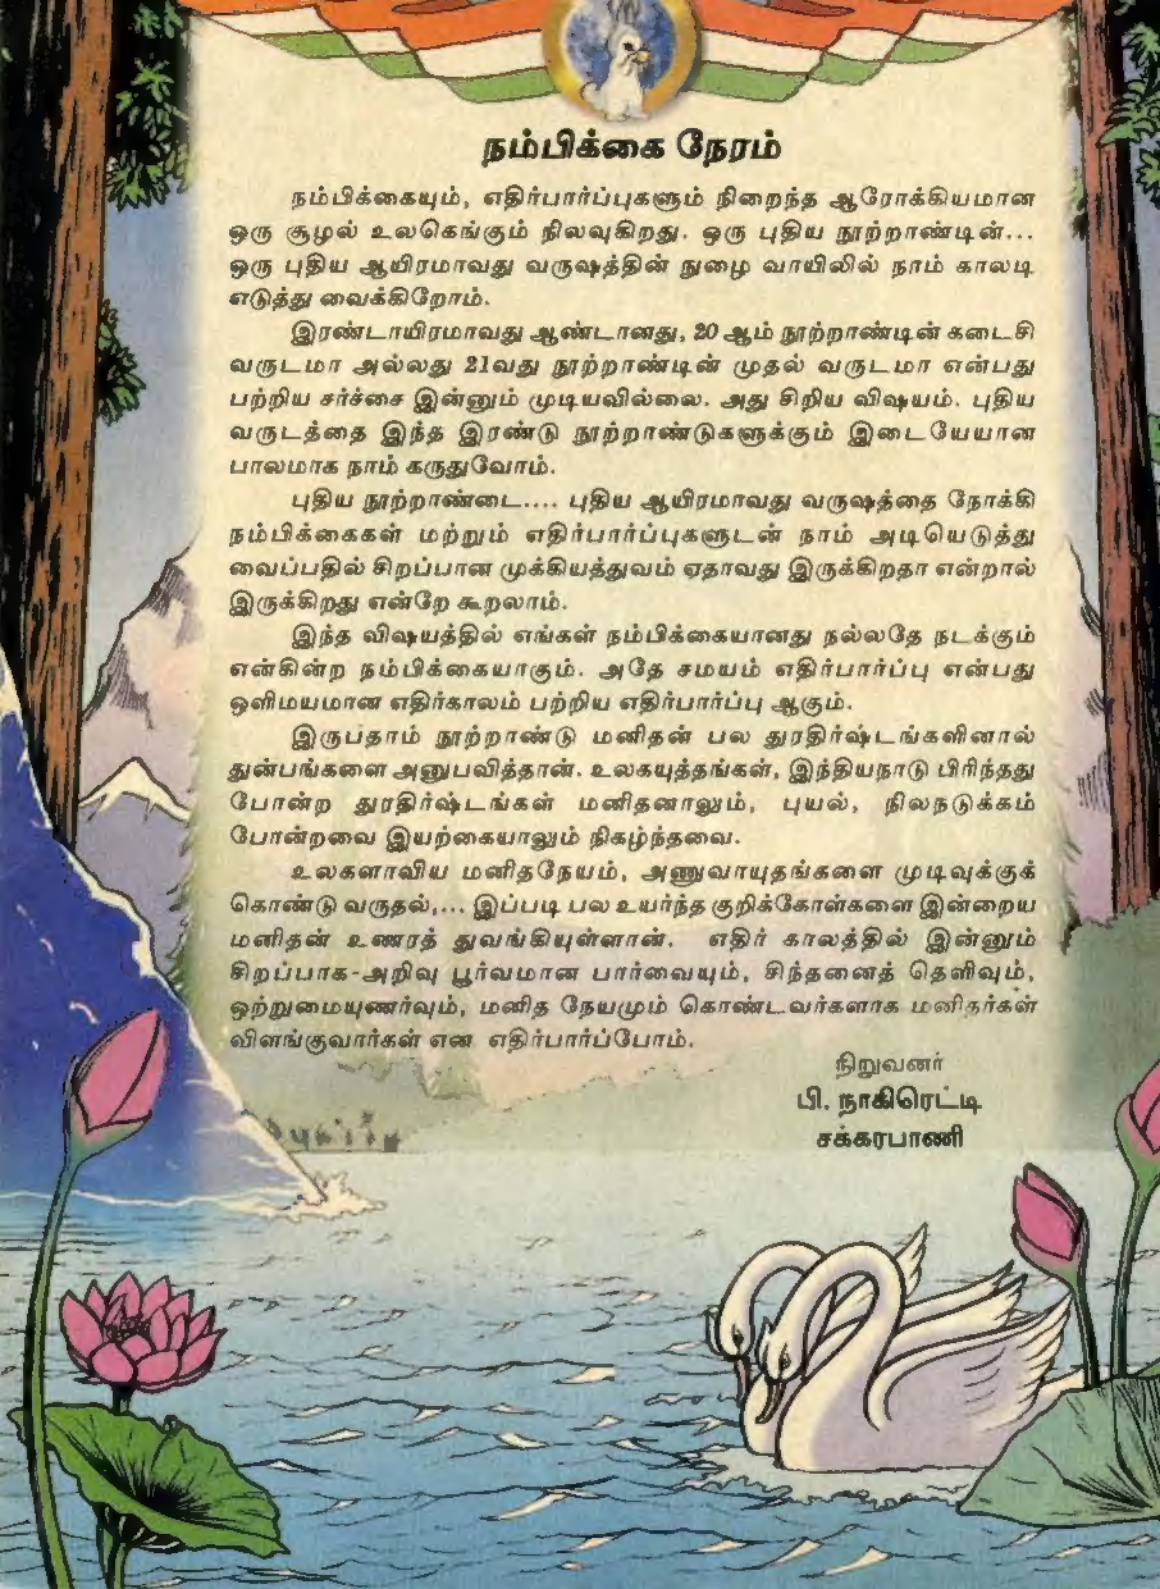 நம்பிக்கை நேரம்
நம்பிக்கையும், எதிர்பார்ப்புகளும் நிறைந்த ஆரோக்கியமான
ஒரு சூழல் உலகெங்கும் நிலவுகிறது. ஒரு புதிய நூற்றாண்டின்...
ஒரு புதிய ஆயிரமாவது வருஷத்தின் நுழை வாயிலில் நாம் காலடி
எடுத்து வைக்கிறோம்.
இரண்டாயிரமாவது ஆண்டானது, 20 ஆம் நூற்றாண்டின் கடைசி
வருடமா அல்லது 21வது நூற்றாண்டின் முதல் வருடமா என்பது
பற்றிய சர்ச்சை இன்னும் முடியவில்லை. அது சிறிய விஷயம். புதிய
வருடத்தை இந்த இரண்டு நூற்றாண்டுகளுக்கும் இடையேயான
பாலமாக நாம் கருதுவோம்.
புதிய நூற்றாண்டை.... புதிய ஆயிரமாவது வருஷத்தை நோக்கி
நம்பிக்கைகள் மற்றும் எதிர்பார்ப்புகளுடன் நாம் அடியெடுத்து
வைப்பதில் சிறப்பான முக்கியத்துவம் ஏதாவது இருக்கிறதா என்றால்
இருக்கிறது என்றே கூறலாம்.
இந்த விஷயத்தில் எங்கள் நம்பிக்கையானது நல்லதே நடக்கும்
என்கின்ற நம்பிக்கையாகும். அதே சமயம் எதிர்பார்ப்பு என்பது
ஒளிமயமான எதிர்காலம் பற்றிய எதிர்பார்ப்பு ஆகும்.
இருபதாம் நூற்றாண்டு மனிதன் பல துரதிர்ஷ்டங்களினால்
துன்பங்களை அனுபவித்தான். உலகயுத்தங்கள், இந்தியநாடு பிரிந்தது
போன்ற துரதிர்ஷ்டங்கள் மனிதனாலும், புயல், நிலநடுக்கம்
போன்றவை இயற்கையாலும் நிகழ்ந்தவை.
உலகளாவிய மனிதநேயம், அணுவாயுதங்களை முடிவுக்குக்
கொண்டு வருதல்,... இப்படி பல உயர்ந்த குறிக்கோள்களை இன்றைய
மனிதன் உணரத் துவங்கியுள்ளான். எதிர் காலத்தில் இன்னும்
சிறப்பாக-அறிவு பூர்வமான பார்வையும், சிந்தனைத் தெளிவும்,
ஒற்றுமையுணர்வும், மனித நேயமும் கொண்டவர்களாக மனிதர்கள்
விளங்குவார்கள் என எதிர்பார்ப்போம்.
நிறுவனர்
பி. நாகிரெட்டி
சக்கரபாணி